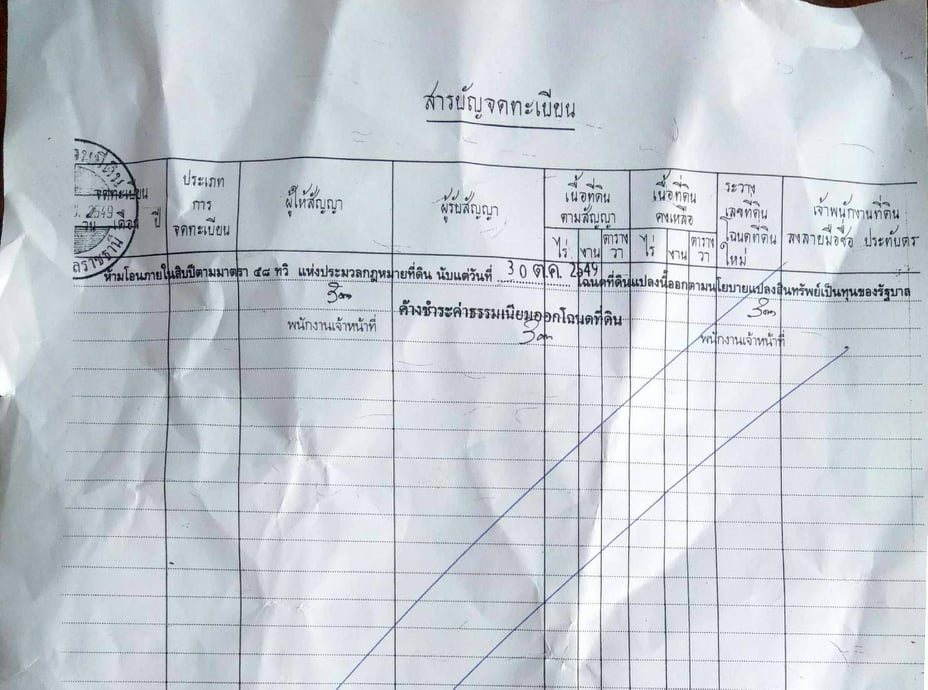 สารบัญจดทะเบียน
จดทะเบียน
วัน เดือน ปี
ประเภท
การ
จดทะเบียน
ผู้ให้สัญญา
ผู้รับสัญญา
เนื้อที่ดิน
ตามสัญญา
ไร่ งาน ตาราง
วา
เนื้อที่ดิน
คงเหลือ
ไร่ งาน ตาราง
วา
ระวาง
เลขที่ดิน
โฉนดที่ดิน
ใหม่
เจ้าพนักงานที่ดิน
ลงลายมือชื่อ ประทับตรา
2549
ห้ามโอนภายในสิบปีตามมาตรา ๕๘ ทวิ แห่งประมวลกฎหมายที่ดิน นับแต่วันที่ 30 ต.ค. 2549 โฉนดที่ดินแปลงนี้ออกตามนโยบายแปลงสินทรัพย์เป็นทุนของรัฐบาล
ค้างชำระค่าธรรมเนียมออกโฉนดที่ดิน
พนักงานเจ้าหน้าที่
พนักงานเจ้าหน้าที่